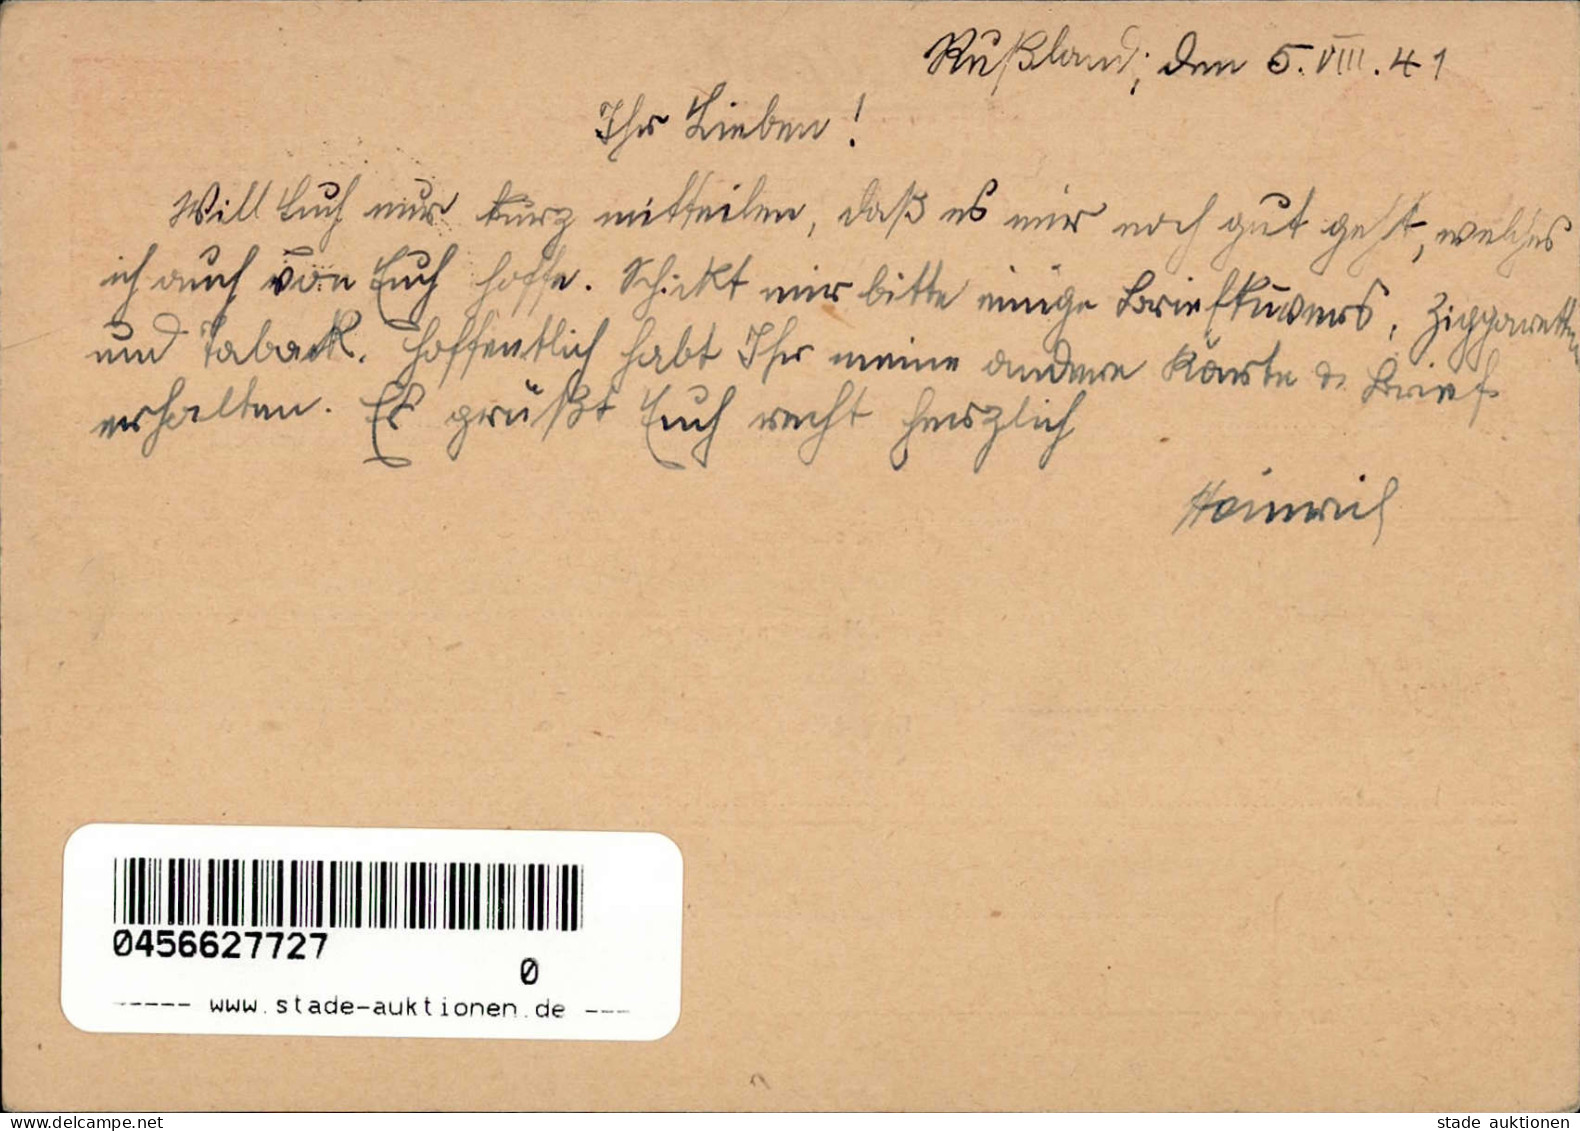 Rußland, den 5.VIII.41
Ihr Lieben!
Will Euch nur kurz mitteilen, daß es mir noch gut geht, welches
ich auch von Euch hoffe. Schickt mir bitte einige Briefkuvers, Ziggaretten
und Taback. Hoffentlich habt Ihr meine andere Karte & Brief
erhalten. Es grüßt Euch recht herzlich
Heinrich
0456627727
0
----- www.stade-auktionen.de ---
delcampe.net
stade auktionen